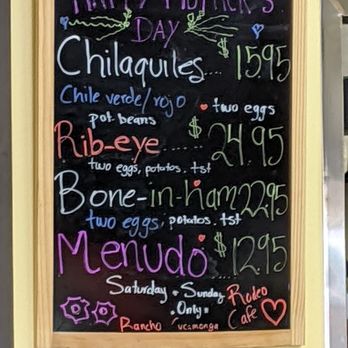 HAPPY MOTHER'S
DAY
Chilaquiles ... $15.95
Chile verde/rojo two eggs
pot beans
Rib-eye ..... $24.95
two eggs, potatos. tst
Bone-in-ham 22.95
two eggs, potatos. tst
Menudo $12.95
Saturday Sunday Rodeo
Only Cafe
Rancho ucamonga